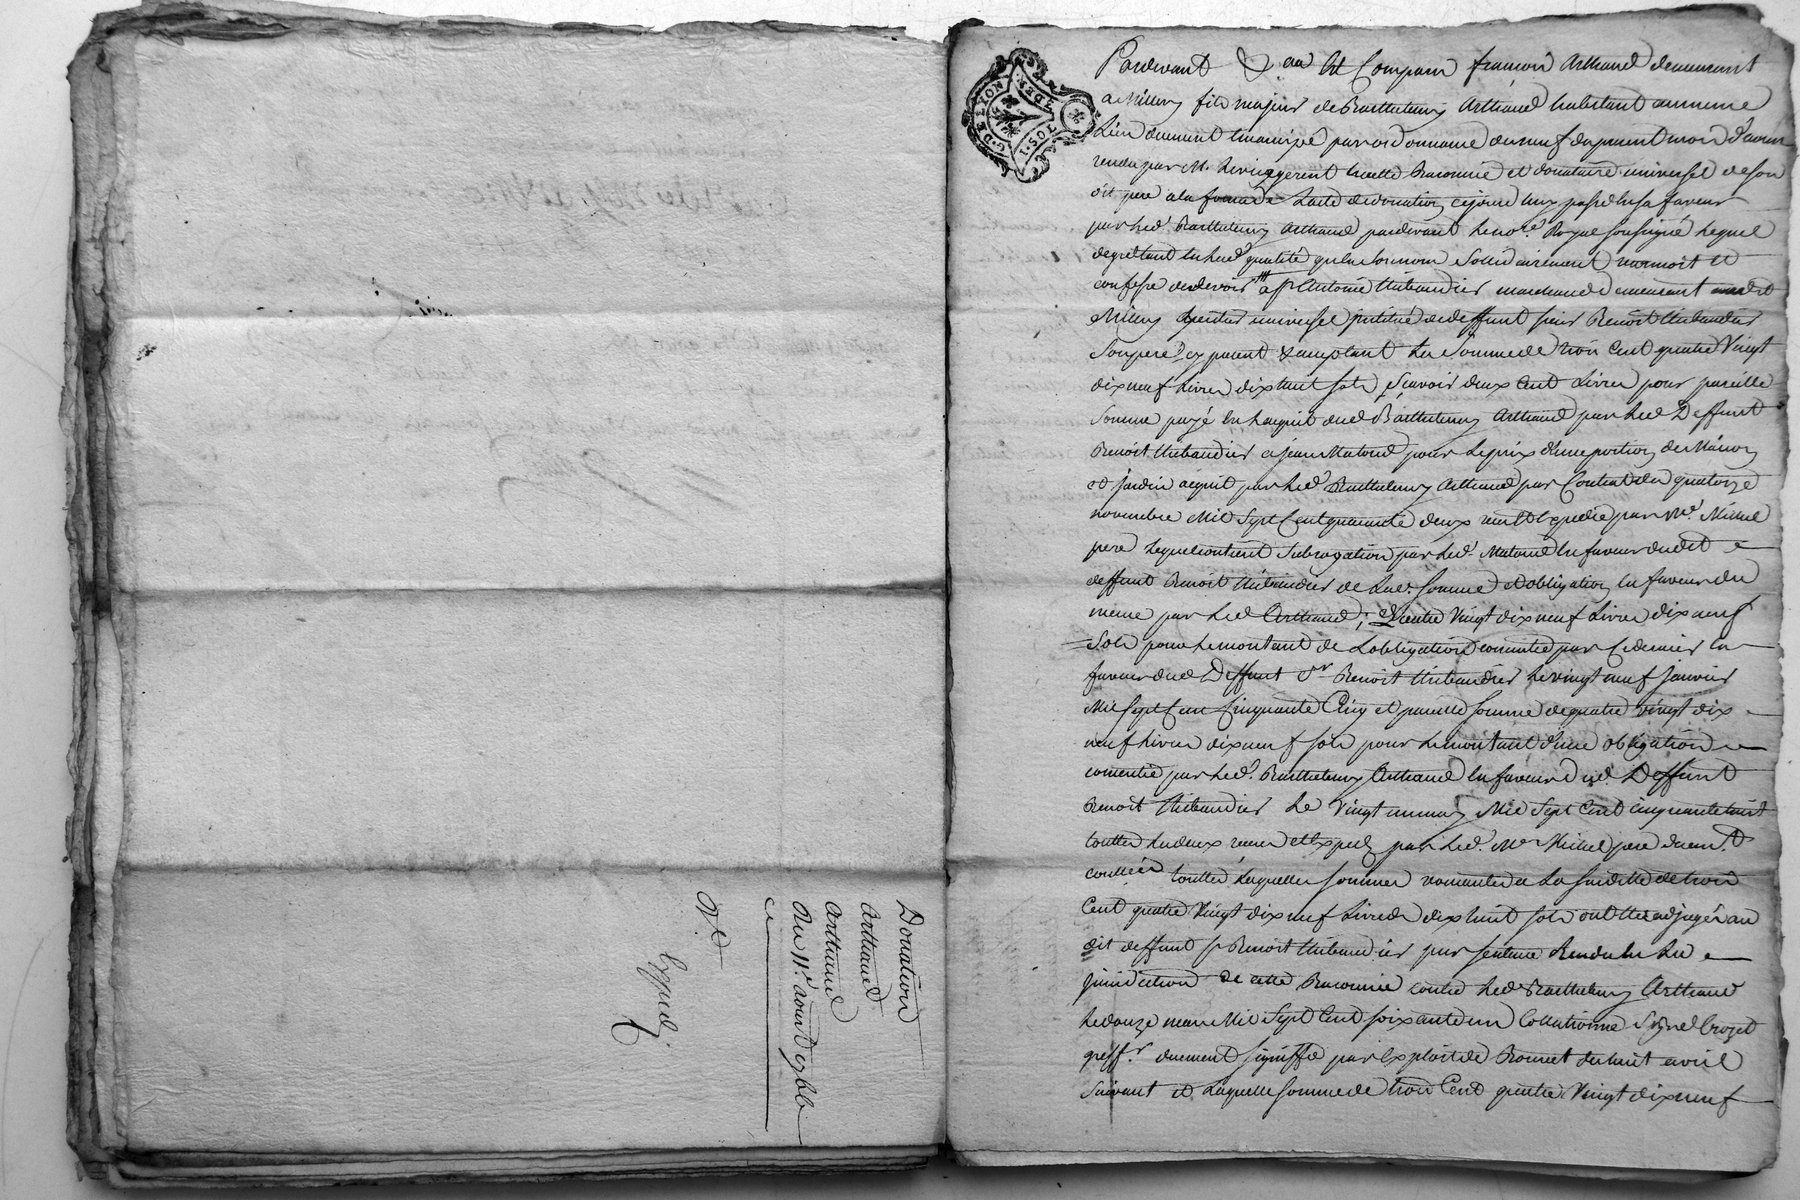 Donation
Arthaud
Arthaud
Du 11.e aoust 1766
Expédié.
G. DE LYON
2. SOLS
Pardevant &.a au Est Comparu françois Arthaud demeurant
a Millery fils majeur de Barthelemy Arthaud habitant au meme
Lieu duement emancipé par ordonnance du neuf du present mois d'aoust
rendue par M. gerent en cette Baronnie et donataire universel de son
dit pere a la forme de Lacte de donation cejourd'huy passé en sa faveur
par led. Barthelemy Arthaud pardevant le no.re Royal soussigné Lequel
de gré tant en lad. qualité qu'en son nom Solidairement reconnoit et
confesse endevoir a Sr. Antoine Thibaudier marchand demeurant audit
Millery heritier universel institué de deffunt sieur Benoit Thibaudier
Son pere cy present & acceptant La Somme de trois Cent quatre Vingt
dix neuf Livres dix huit sols sçavoir deux Cent Livres pour pareille
Somme payé en Lacquit dud. Barthelemy Arthaud par led. Deffunt
Benoit Thibaudier a jean Matord pour Le prix d'une portion de Maison
et jardin acquit par led. Barthelemy Arthaud par Contract du quatorze
novembre Mil Sept Cent quarante deux receu et Expedié par Me. Michel
pere Lequel contient Subrogation par led. Matord en faveur dudit
deffunt Benoit Thibaudier de Lad. Somme et obligation en faveur du
meme par led. Arthaud; Quatre Vingt dix neuf Livres dix neuf
Sols pour Le montant de Lobligation consentie par Ce dernier en
faveur dud. Deffunt Sr. Benoit Thibaudier Le vingt neuf janvier
Mil Sept Cent Cinquante Cinq et pareille Somme de quatre Vingt dix
neuf Livres dix neuf sols pour Le montant d'une obligation
consentie par led. Barthelemy Arthaud en faveur dud. Deffunt
Benoit Thibaudier Le Vingt un may Mil Sept Cent cinquante huit
toutes Les deux receues et Exped. par led. Me. Michel pere duem.t
toutes Lesquelles sommes revenantes a La susditte de trois
Cent quatre Vingt dix neuf Livres dix huit sols ont eté adjugés au
dit deffunt Sr. Benoit Thibaudier par sentence Rendue en La
juridiction de cette Baronnie contre led. Barthelemy Arthaud
Le douze mars Mil Sept Cent soixante un Collationné Signé Crozet
greff.r duement signiffié par Exploit de Bonnet du huit avril
Suivant et Laquelle somme de trois Cent quatre Vingt dix neuf